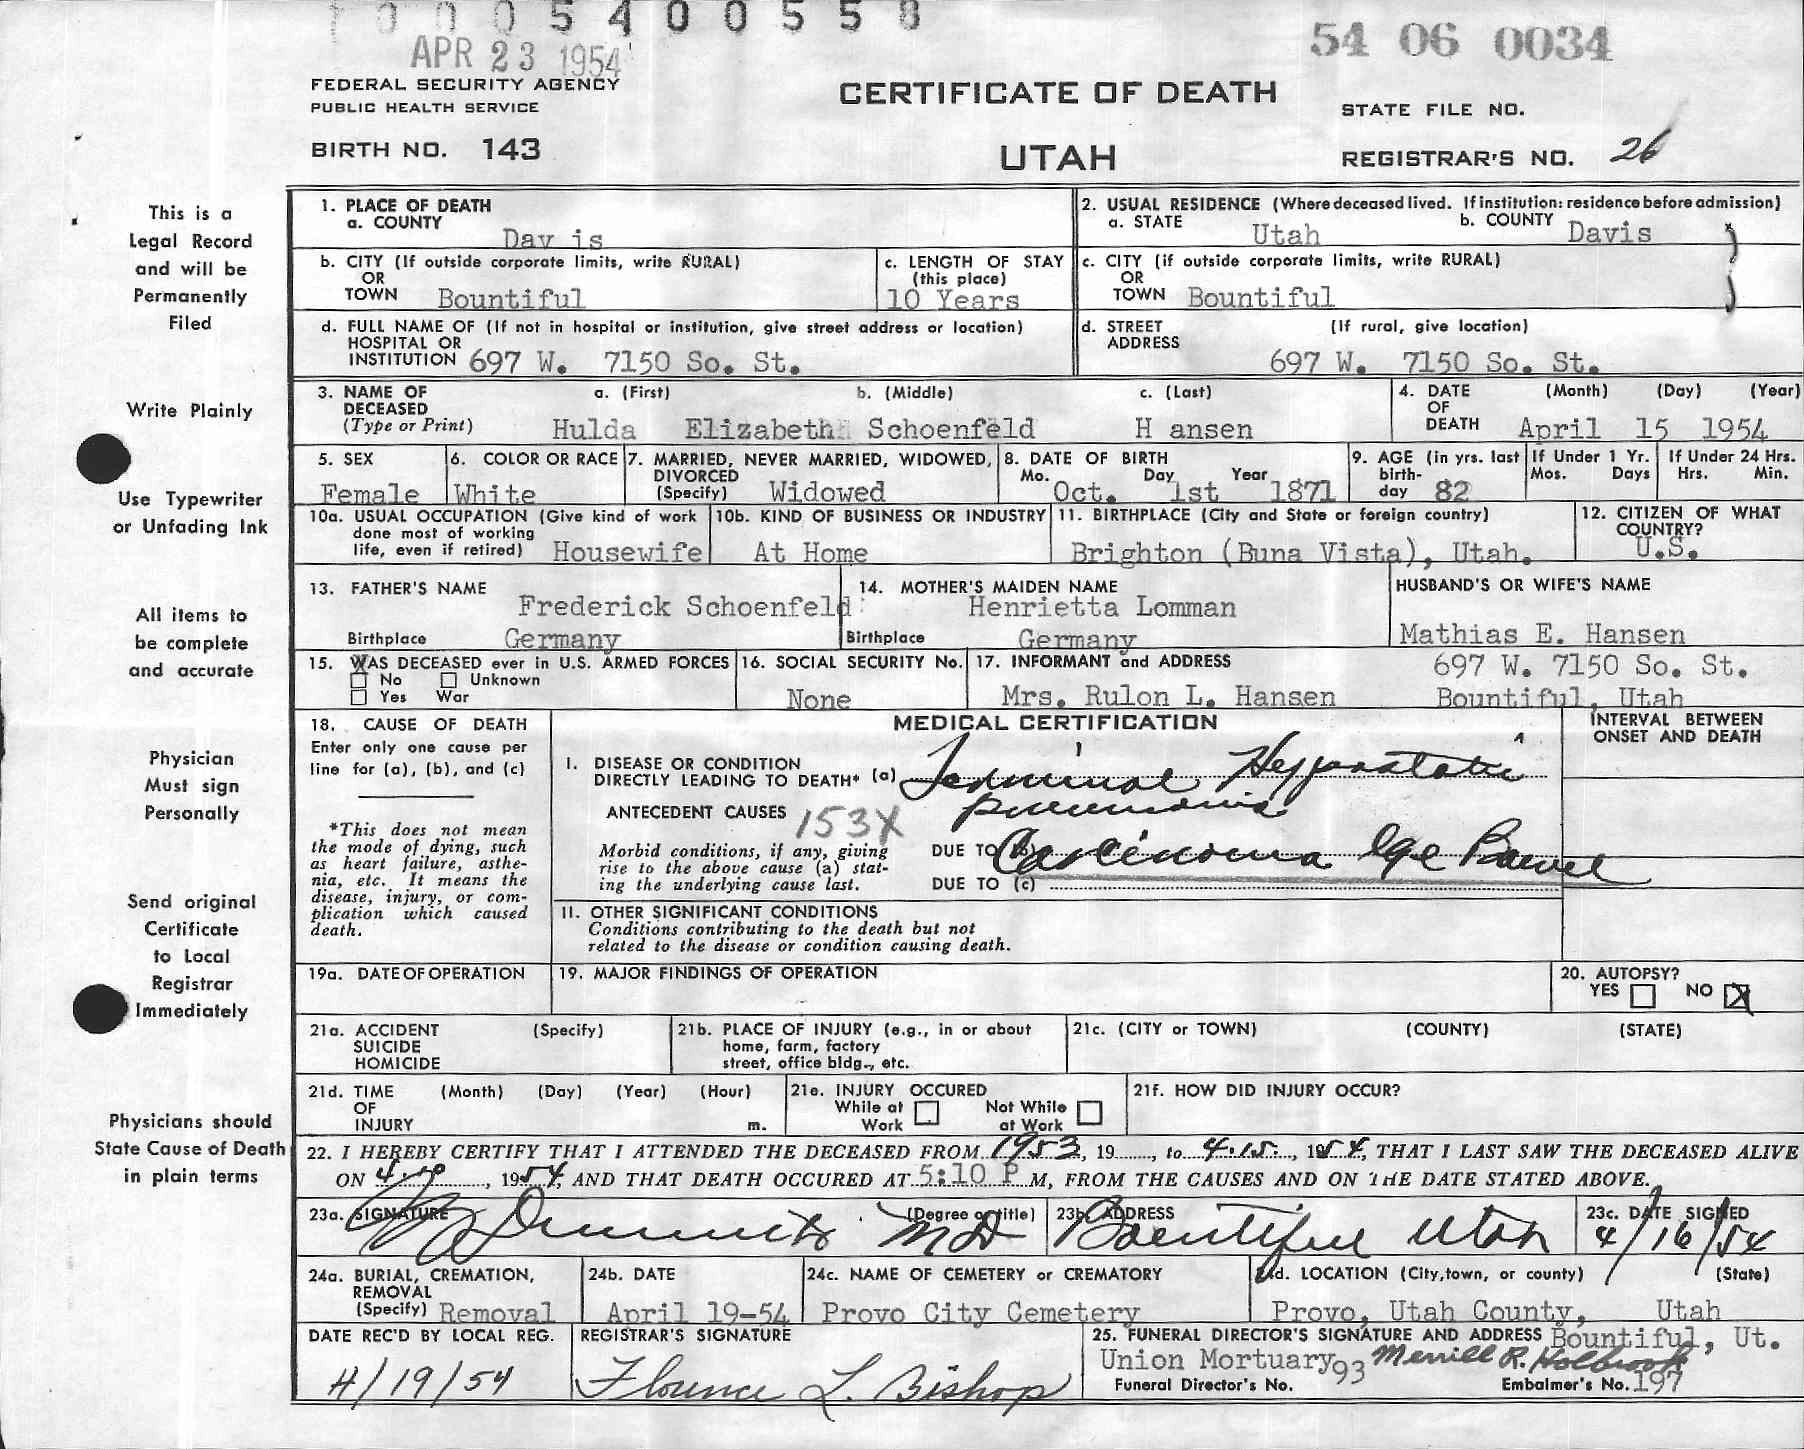 1 0 0 0 5 4 0 0 5 5 8
APR 23 1954
54 06 0034
FEDERAL SECURITY AGENCY
PUBLIC HEALTH SERVICE
BIRTH NO. 143
CERTIFICATE OF DEATH
UTAH
STATE FILE NO.
REGISTRAR'S NO. 26
This is a
Legal Record
and will be
Permanently
Filed
Write Plainly
Use Typewriter
or Unfading Ink
All items to
be complete
and accurate
Physician
Must sign
Personally
Send original
Certificate
to Local
Registrar
Immediately
Physicians should
State Cause of Death
in plain terms
1. PLACE OF DEATH
a. COUNTY
Dav is
2. USUAL RESIDENCE (Where deceased lived. If institution: residence before admission)
a. STATE Utah b. COUNTY Davis
b. CITY (If outside corporate limits, write RURAL)
OR
TOWN Bountiful
c. LENGTH OF STAY
(this place)
10 Years
c. CITY (if outside corporate limits, write RURAL)
OR
TOWN Bountiful
d. FULL NAME OF (If not in hospital or institution, give street address or location)
HOSPITAL OR
INSTITUTION 697 W. 7150 So. St.
d. STREET (If rural, give location)
ADDRESS
697 W. 7150 So. St.
3. NAME OF a. (First) b. (Middle) c. (Last)
DECEASED
(Type or Print) Hulda Elizabeth Schoenfeld H ansen
4. DATE (Month) (Day) (Year)
OF
DEATH April 15 1954
5. SEX
Female
6. COLOR OR RACE
White
7. MARRIED, NEVER MARRIED, WIDOWED,
DIVORCED
(Specify) Widowed
8. DATE OF BIRTH
Mo. Day Year
Oct. 1st 1871
9. AGE (in yrs. last
birth-
day 82
If Under 1 Yr.
Mos. Days
If Under 24 Hrs.
Hrs. Min.
10a. USUAL OCCUPATION (Give kind of work
done most of working
life, even if retired) Housewife
10b. KIND OF BUSINESS OR INDUSTRY
At Home
11. BIRTHPLACE (City and State or foreign country)
Brighton (Buna Vista), Utah.
12. CITIZEN OF WHAT
COUNTRY?
U.S.
13. FATHER'S NAME
Frederick Schoenfeld
Birthplace Germany
14. MOTHER'S MAIDEN NAME
Henrietta Lomman
Birthplace Germany
HUSBAND'S OR WIFE'S NAME
Mathias E. Hansen
15. WAS DECEASED ever in U.S. ARMED FORCES
No Unknown
Yes War
16. SOCIAL SECURITY No.
None
17. INFORMANT and ADDRESS 697 W. 7150 So. St.
Mrs. Rulon L. Hansen Bountiful, Utah
18. CAUSE OF DEATH
Enter only one cause per
line for (a), (b), and (c)
*This does not mean
the mode of dying, such
as heart failure, asthe-
nia, etc. It means the
disease, injury, or com-
plication which caused
death.
MEDICAL CERTIFICATION
INTERVAL BETWEEN
ONSET AND DEATH
I. DISEASE OR CONDITION
DIRECTLY LEADING TO DEATH* (a) Terminal Hypostatic
pneumonia
ANTECEDENT CAUSES 153X
Morbid conditions, if any, giving
rise to the above cause (a) stat-
ing the underlying cause last.
DUE TO (b) Carcinoma lge Bowel
DUE TO (c)
II. OTHER SIGNIFICANT CONDITIONS
Conditions contributing to the death but not
related to the disease or condition causing death.
19a. DATE OF OPERATION
19. MAJOR FINDINGS OF OPERATION
20. AUTOPSY?
YES NO X
21a. ACCIDENT (Specify)
SUICIDE
HOMICIDE
21b. PLACE OF INJURY (e.g., in or about
home, farm, factory
street, office bldg., etc.
21c. (CITY or TOWN) (COUNTY) (STATE)
21d. TIME (Month) (Day) (Year) (Hour)
OF
INJURY m.
21e. INJURY OCCURED
While at Not While
Work at Work
21f. HOW DID INJURY OCCUR?
22. I HEREBY CERTIFY THAT I ATTENDED THE DECEASED FROM 1953, 19, to 4.15., 1954, THAT I LAST SAW THE DECEASED ALIVE
ON , 1954, AND THAT DEATH OCCURED AT 5:10 P M, FROM THE CAUSES AND ON THE DATE STATED ABOVE.
23a. SIGNATURE (Degree or title)
MD
23b. ADDRESS
Bountiful Utah
23c. DATE SIGNED
4/16/54
24a. BURIAL, CREMATION,
REMOVAL
(Specify) Removal
24b. DATE
April 19-54
24c. NAME OF CEMETERY or CREMATORY
Provo City Cemetery
24d. LOCATION (City, town, or county) (State)
Provo, Utah County, Utah
DATE REC'D BY LOCAL REG.
4/19/54
REGISTRAR'S SIGNATURE
Florence L. Bishop
25. FUNERAL DIRECTOR'S SIGNATURE AND ADDRESS Bountiful, Ut.
Union Mortuary 93 Merrill R. Holbrook
Funeral Director's No. Embalmer's No. 197